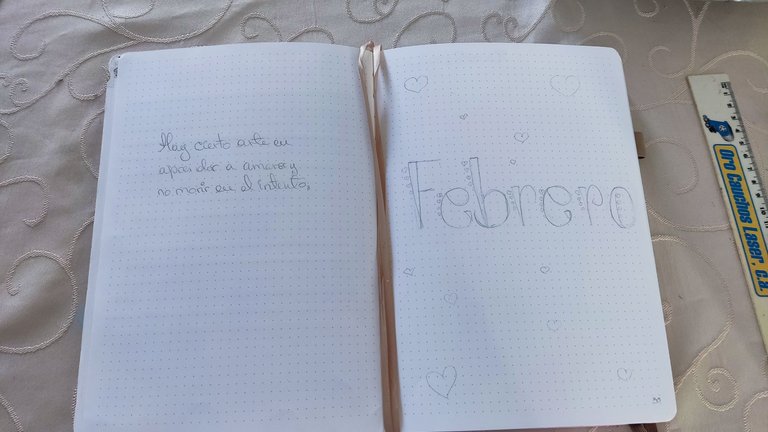 Hay cierto arte en
aprender a amarse y
no morir en el intento.
Febrero
Oro Cauchos Laser, c.a.